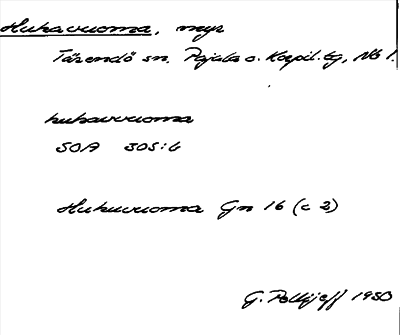 Hukavuoma, myr
Tärendö sn. Pajala o. Korpil. tg, Nb l.
hukavvuoma
SOA 305:6
Hukuvuoma Gn 16 (c 2)
G. Pellijeff 1980